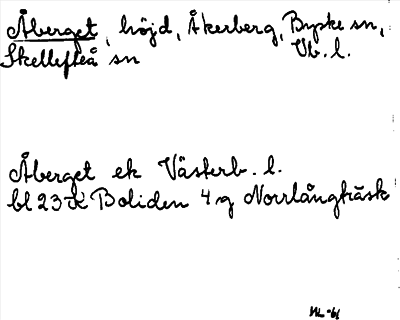 Åberget, höjd, Åkerberg, Byske sn,
Skellefteå sn Vb. l.
Åberget ek Västerb. l.
bl 23 K Boliden 4 g Norrlångträsk